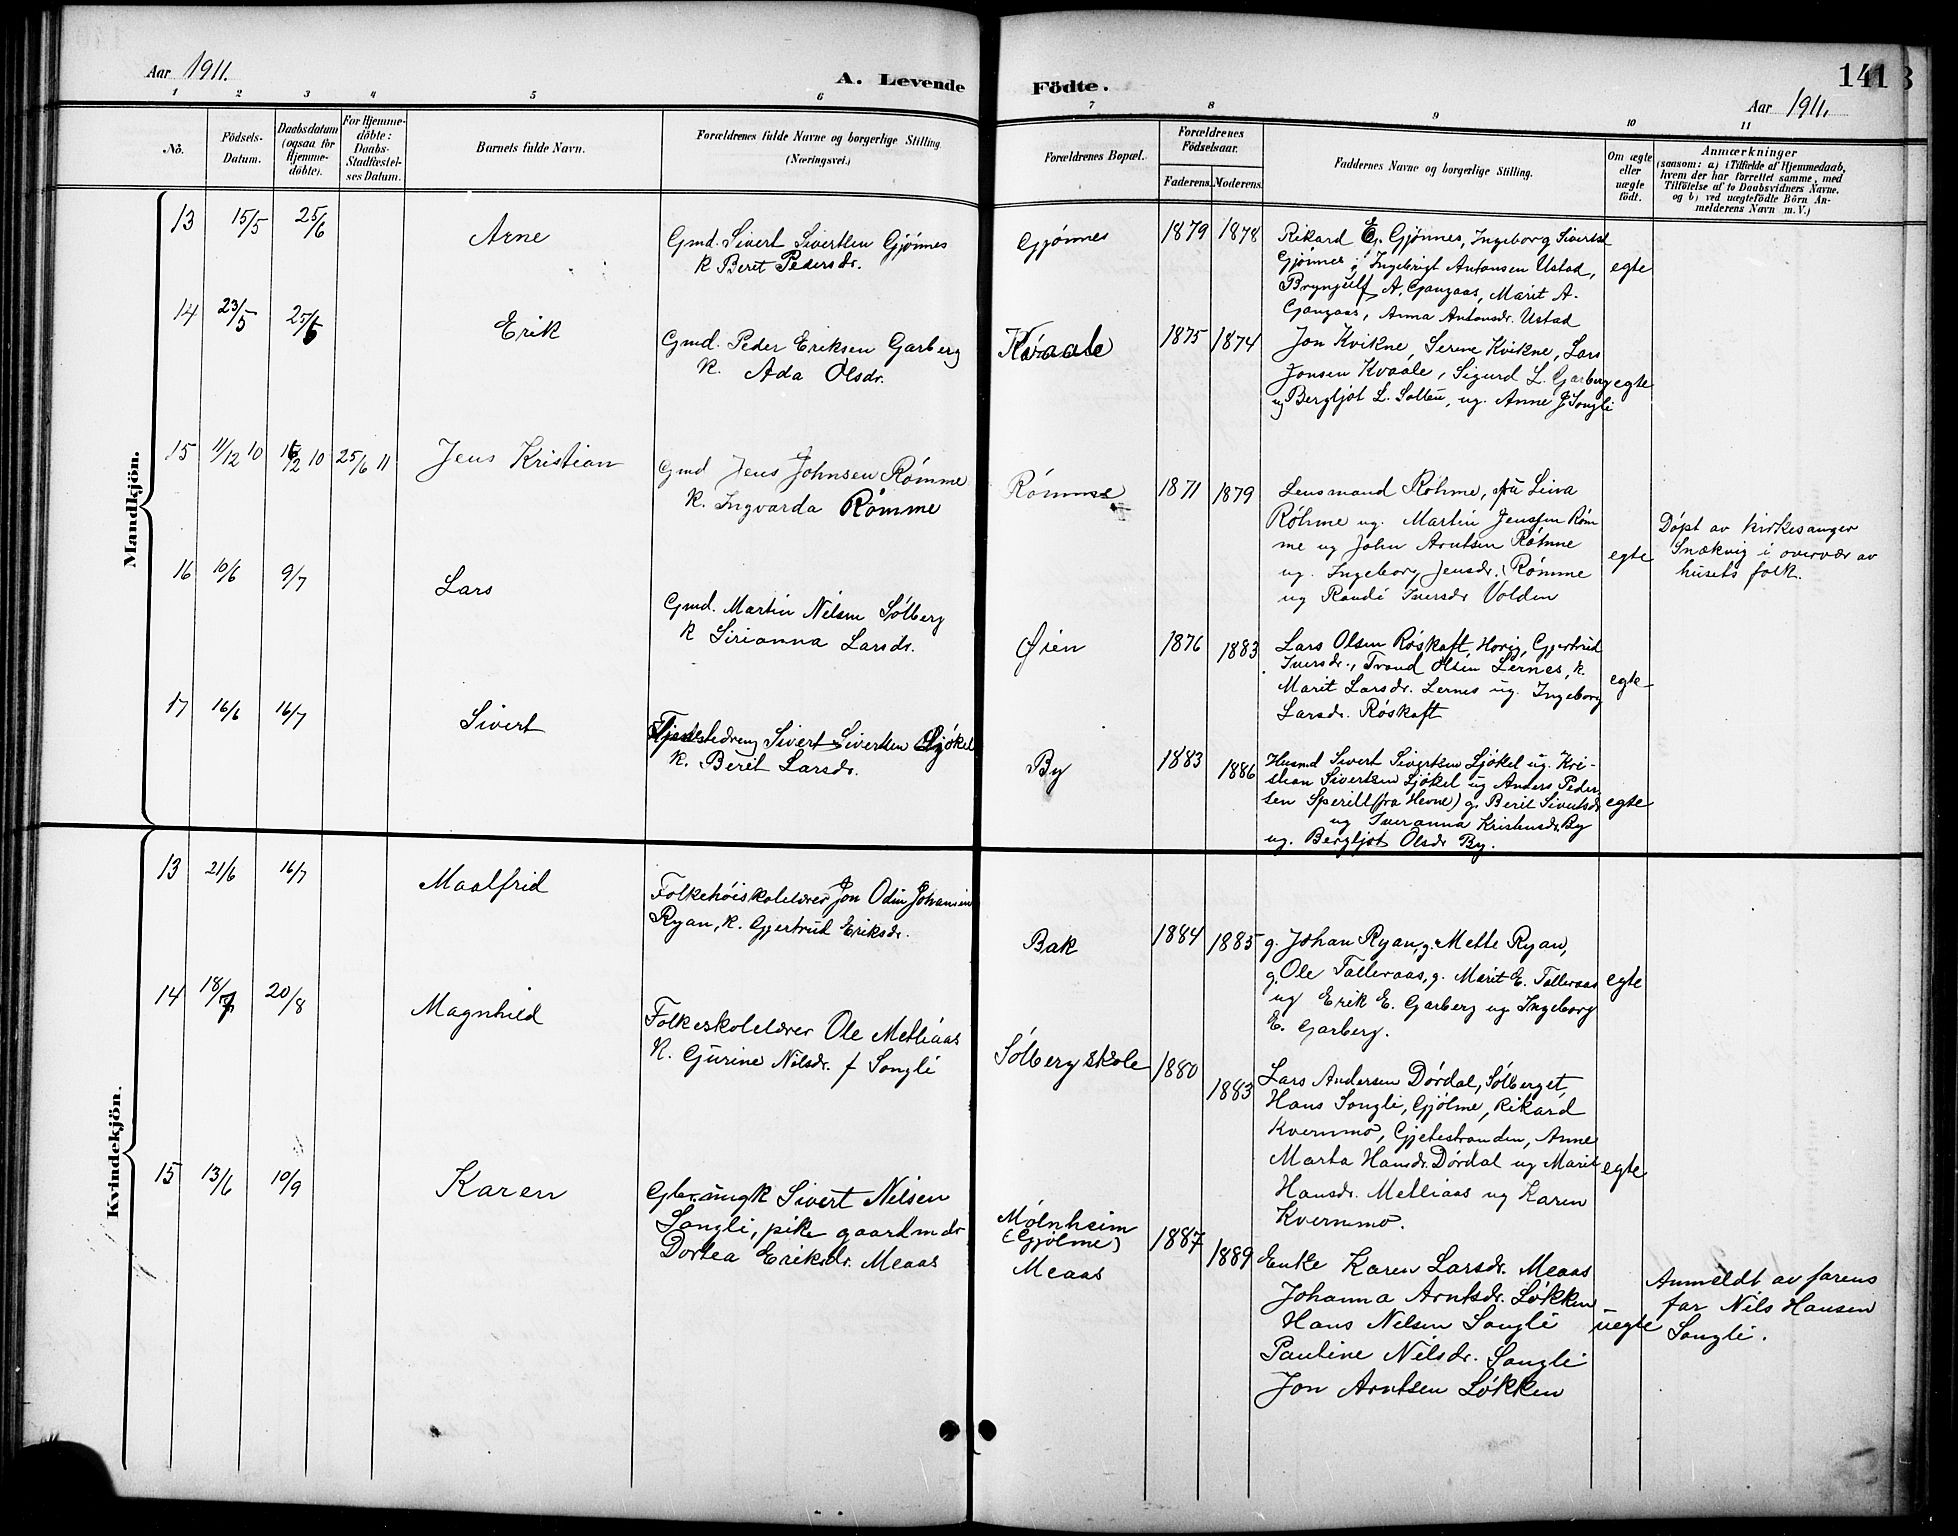 Aar 1911.
A. Levende Födte.
141
Aar 1911.
1 2 3 4 5 6 7 8 9 10 11
No.
Födsels-
Datum.
Daabsdatum
(ogsaa for
Hjemme-
döbte).
For Hjemme-
döbte:
Daabs-
Stadfæstel-
ses Datum.
Barnets fulde Navn.
Forældrenes fulde Navne og borgerlige Stilling
(Næringsvei.)
Forældrenes Bopæl.
Forældrenes
Födselsaar.
Faderens. Moderens.
Faddernes Navne og borgerlige Stilling.
Om ægte
eller
uægte
födt.
Anmærkninger
(saasom: a) i Tilfælde af Hjemmedaab,
hvem der har forrettet samme, med
Tilföielse af to Daabsvidners Navne.
og b) ved uægtefödte Börn An-
melderens Navn m. V.)
Mandkjön.
13 15/5 25/6 Arne
Gmd. Sivert Sivertsen Gjønnes
k Berit Pedersdr.
Gjønnes 1879 1878
Rikard E. Gjønnes, Ingeborg Sivertsd
Gjønnes, Ingebrigt Antonsen Ustad,
Brynjulf A. Gangaas, Marit A.
Gangaas, Anna Antonsdr. Ustad
egte
14 23/5 25/6 Erik
Gmd. Peder Eriksen Garberg
k. Ada Olsdr.
Kvaale 1875 1874
Jon Kvikne, Serine Kvikne, Lars
Jonsen Kvaale, Sigurd L. Garberg
ug Bergljot L. Solbu, ug. Anne J Songli
egte
15 11/12 10 15/12 10 25/6 11 Jens Kristian
Gmd Jens Johnsen Rømme
k. Ingvarda Rømme
Rømme 1871 1879
Lensmand Røhme, fru Lina
Røhme ug. Martin Jenssen Røm
me ug John Arntsen Rømme
ug. Ingeborg Jensdr. Rømme
ug Randi Iversdr Volden
egte
Døpt av kirkesanger
Snækvig i overvær av
husets folk.
16 10/6 9/7 Lars
Gmd. Martin Nilsen Sølberg
k Sirianna Larsdr.
Øien 1876 1883
Lars Olsen Røskaft, Horig, Gjertrud
Iversdr., Trond Olsen Lernes, k.
Marit Larsdr. Lernes ug. Ingeborg
Larsdr. Røskaft
egte
17 16/6 16/7 Sivert
Sivert Sivertsen Sjøkel
k. Berit Larsdr.
By 1883 1886
Husmd Sivert Sivertsen Sjøkel ug. Kri-
stian Sivertsen Sjøkel ug Anders Peder
sen Sperill (fra Hevne) g. Berit Sivertsdr
ug Iveranna Kristensdr. By
ug. Bergljot Olsdr By.
egte
Kvindekjön.
13 21/6 16/7 Maalfrid
Folkehøiskolelærer Jon Odin Johansen
Ryan, k. Gjertrud Eriksdr.
Bak 1884 1885
g. Johan Ryan, g. Mette Ryan,
g. Ole Talleraas, g. Marit E. Talleraas
ug Erik E. Garberg ug Ingeborg
E. Garberg.
egte
14 18/7 20/8 Magnhild
Folkeskolelærer Ole Metliaas
k. Gurine Nilsdr. f Songli
Sølberg skole 1880 1883
Lars Andersen Dørdal, Sølberget,
Hans Songli, Gjølme, Rikard
Kvernmo, Gjetestranden, Anne
Marta Hansdr. Dørdal ug Marit
Hansdr. Metliaas ug Karen
Kvernmo.
egte
15 13/6 10/9 Karen
Gbr. ungk Sivert Nilsen
Songli, pike gaardmdr
Dortea Eriksdr. Meaas
Mølnheim
(Gjølme)
Meaas
1887 1889
Enke Karen Larsdr. Meaas
Johanna Arntsdr. Løkken
Hans Nilsen Songli
Pauline Nilsdr. Songli
Jon Arntsen Løkken
uegte
Anmeldt av farens
far Nils Hansen
Songli.